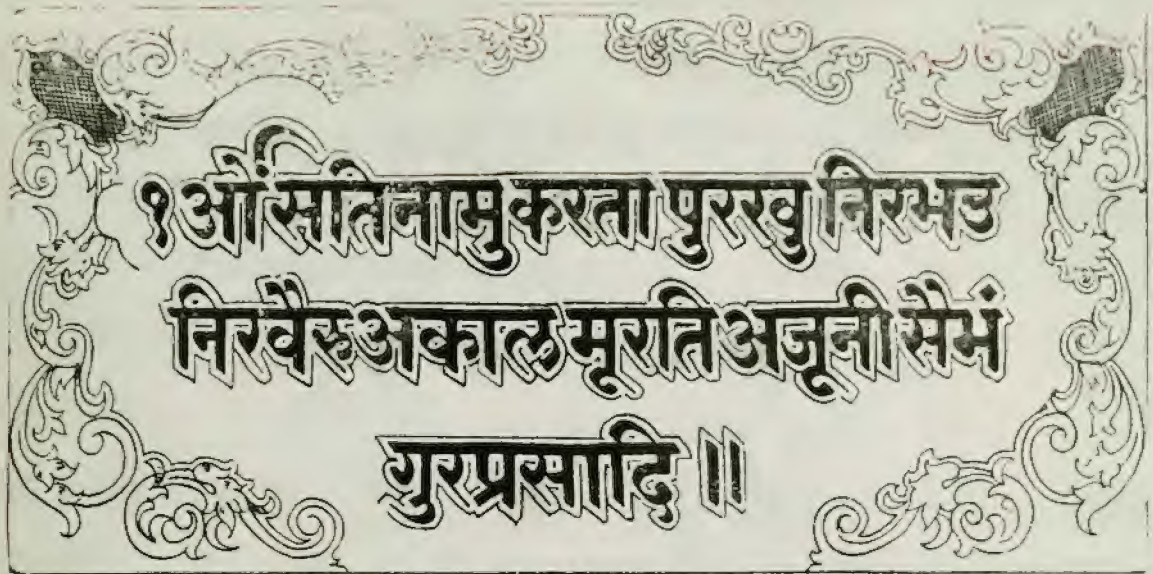 १ओं सति नामु करता पुरखु निरभउ
निरवैरु अकाल मूरति अजूनी सैभं
गुरप्रसादि ॥